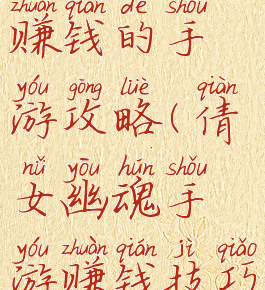 zhuàn qián de shǒu
赚钱的手
yóu gōng lüè qiàn
游攻略(倩
nǚ yōu hún shǒu
女幽魂手
yóu zhuàn qián jì qiǎo
游赚钱技巧